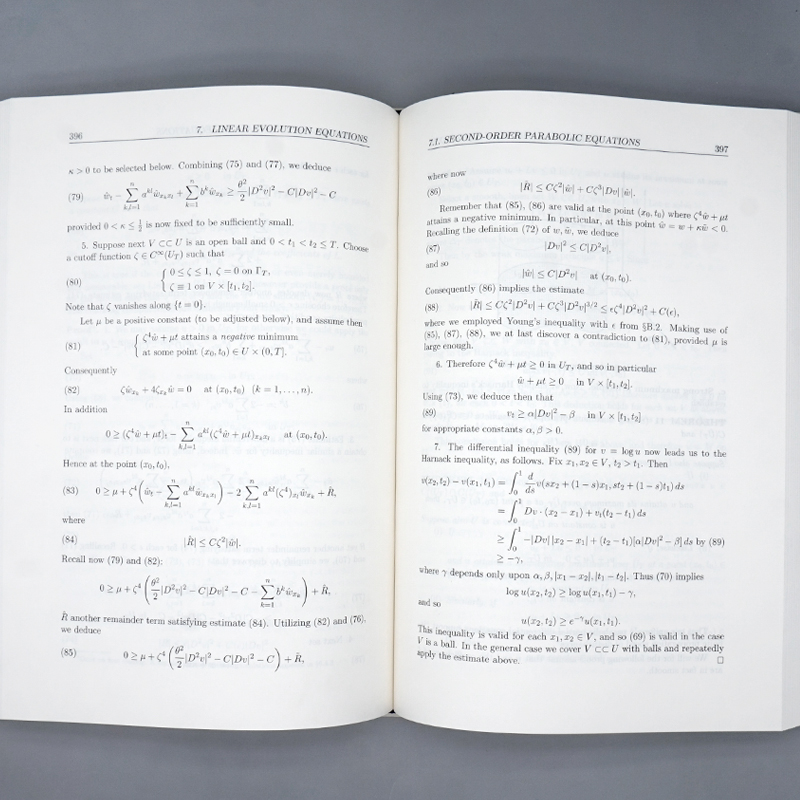 396
7. LINEAR EVOLUTION EQUATIONS
κ > 0 to be selected below. Combining (75) and (77), we deduce
(79) ŵ_t − ∑_{k,l=1}^n a^{kl} ŵ_{x_k x_l} + ∑_{k=1}^n b^k ŵ_{x_k} ≥ θ²/2 |D²v|² − C|Dv|² − C
provided 0 < κ ≤ 1/2 is now fixed to be sufficiently small.
5. Suppose next V ⊂⊂ U is an open ball and 0 < t₁ < t₂ ≤ T. Choose
a cutoff function ζ ∈ C^∞(U_T) such that
(80) { 0 ≤ ζ ≤ 1, ζ = 0 on Γ_T,
ζ ≡ 1 on V × [t₁, t₂].
Note that ζ vanishes along {t = 0}.
Let μ be a positive constant (to be adjusted below), and assume then
(81) { ζ⁴ŵ + μt attains a negative minimum
at some point (x₀, t₀) ∈ U × (0, T].
Consequently
(82) ζŵ_{x_k} + 4ζ_{x_k}ŵ = 0 at (x₀, t₀) (k = 1, . . . , n).
In addition
0 ≥ (ζ⁴ŵ + μt)_t − ∑_{k,l=1}^n a^{kl}(ζ⁴ŵ + μt)_{x_k x_l} at (x₀, t₀).
Hence at the point (x₀, t₀),
(83) 0 ≥ μ + ζ⁴ ( ŵ_t − ∑_{k,l=1}^n a^{kl} ŵ_{x_k x_l} ) − 2 ∑_{k,l=1}^n a^{kl}(ζ⁴)_{x_l} ŵ_{x_k} + R̂,
where
(84) |R̂| ≤ Cζ²|ŵ|.
Recall now (79) and (82):
0 ≥ μ + ζ⁴ ( θ²/2 |D²v|² − C|Dv|² − C − ∑_{k=1}^n b^k ŵ_{x_k} ) + R̂,
R̂ another remainder term satisfying estimate (84). Utilizing (82) and (76),
we deduce
(85) 0 ≥ μ + ζ⁴ ( θ²/2 |D²v|² − C|Dv|² − C ) + R̂,
7.1. SECOND-ORDER PARABOLIC EQUATIONS
397
where now
(86) |R̂| ≤ Cζ²|ŵ| + Cζ³|Dv| |ŵ|.
Remember that (85), (86) are valid at the point (x₀, t₀) where ζ⁴ŵ + μt
attains a negative minimum. In particular, at this point ŵ = w + κw̃ < 0.
Recalling the definition (72) of w, w̃, we deduce
(87) |Dv|² ≤ C|D²v|,
and so
|ŵ| ≤ C|D²v| at (x₀, t₀).
Consequently (86) implies the estimate
(88) |R̂| ≤ Cζ²|D²v| + Cζ³|D²v|^{3/2} ≤ εζ⁴|D²v|² + C(ε),
where we employed Young's inequality with ε from §B.2. Making use of
(85), (87), (88), we at last discover a contradiction to (81), provided μ is
large enough.
6. Therefore ζ⁴ŵ + μt ≥ 0 in U_T, and so in particular
ŵ + μt ≥ 0 in V × [t₁, t₂].
Using (73), we deduce then that
(89) v_t ≥ α|Dv|² − β in V × [t₁, t₂]
for appropriate constants α, β > 0.
7. The differential inequality (89) for v = log u now leads us to the
Harnack inequality, as follows. Fix x₁, x₂ ∈ V, t₂ > t₁. Then
v(x₂, t₂) − v(x₁, t₁) = ∫₀¹ d/ds v(sx₂ + (1 − s)x₁, st₂ + (1 − s)t₁) ds
= ∫₀¹ Dv · (x₂ − x₁) + v_t(t₂ − t₁) ds
≥ ∫₀¹ −|Dv| |x₂ − x₁| + (t₂ − t₁)[α|Dv|² − β] ds by (89)
≥ −γ,
where γ depends only upon α, β, |x₁ − x₂|, |t₁ − t₂|. Thus (70) implies
log u(x₂, t₂) ≥ log u(x₁, t₁) − γ,
and so
u(x₂, t₂) ≥ e^{−γ}u(x₁, t₁).
This inequality is valid for each x₁, x₂ ∈ V, and so (69) is valid in the case
V is a ball. In the general case we cover V ⊂⊂ U with balls and repeatedly
apply the estimate above. □